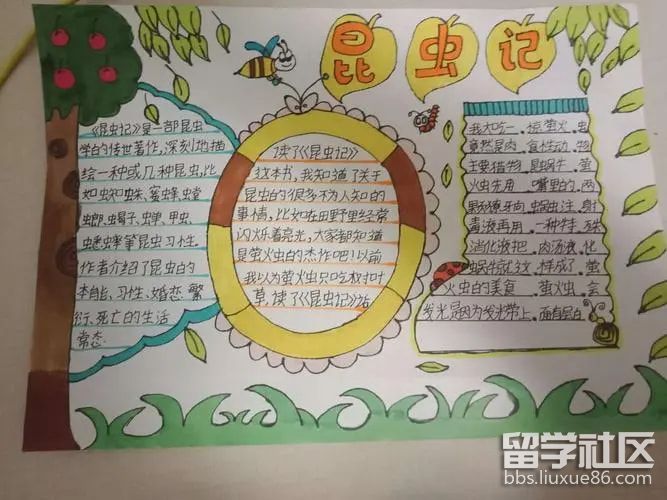 昆虫记
《昆虫记》是一部昆虫
学的传世著作,深刻地描
绘一种或几种昆虫,比
如蜘蛛、蜜蜂、螳
螂、蝎子、蝉、甲虫、
蟋蟀等昆虫习性.
作者介绍了昆虫的
本能、习性、婚恋、繁
衍、死亡的生活
常态.
读了《昆虫记》
这本书,我知道了关于
昆虫的很多不为人知的
事情,比如在田野里经常
闪烁着亮光,大家都知道
是萤火虫的杰作吧!以前
我以为萤火虫只吃树叶
草,读了《昆虫记》后
我大吃一惊,萤火虫
竟然是肉食性动物
主要猎物是蜗牛,萤
火虫先用嘴里的两
颗獠牙向蜗牛注射
毒液再用一种特殊
消化液把肉汤液化
蜗牛就这样成了萤
火虫的美食.萤火虫会
发光是因为发光带上面有层白
留学社区
bbs.liuxue86.com